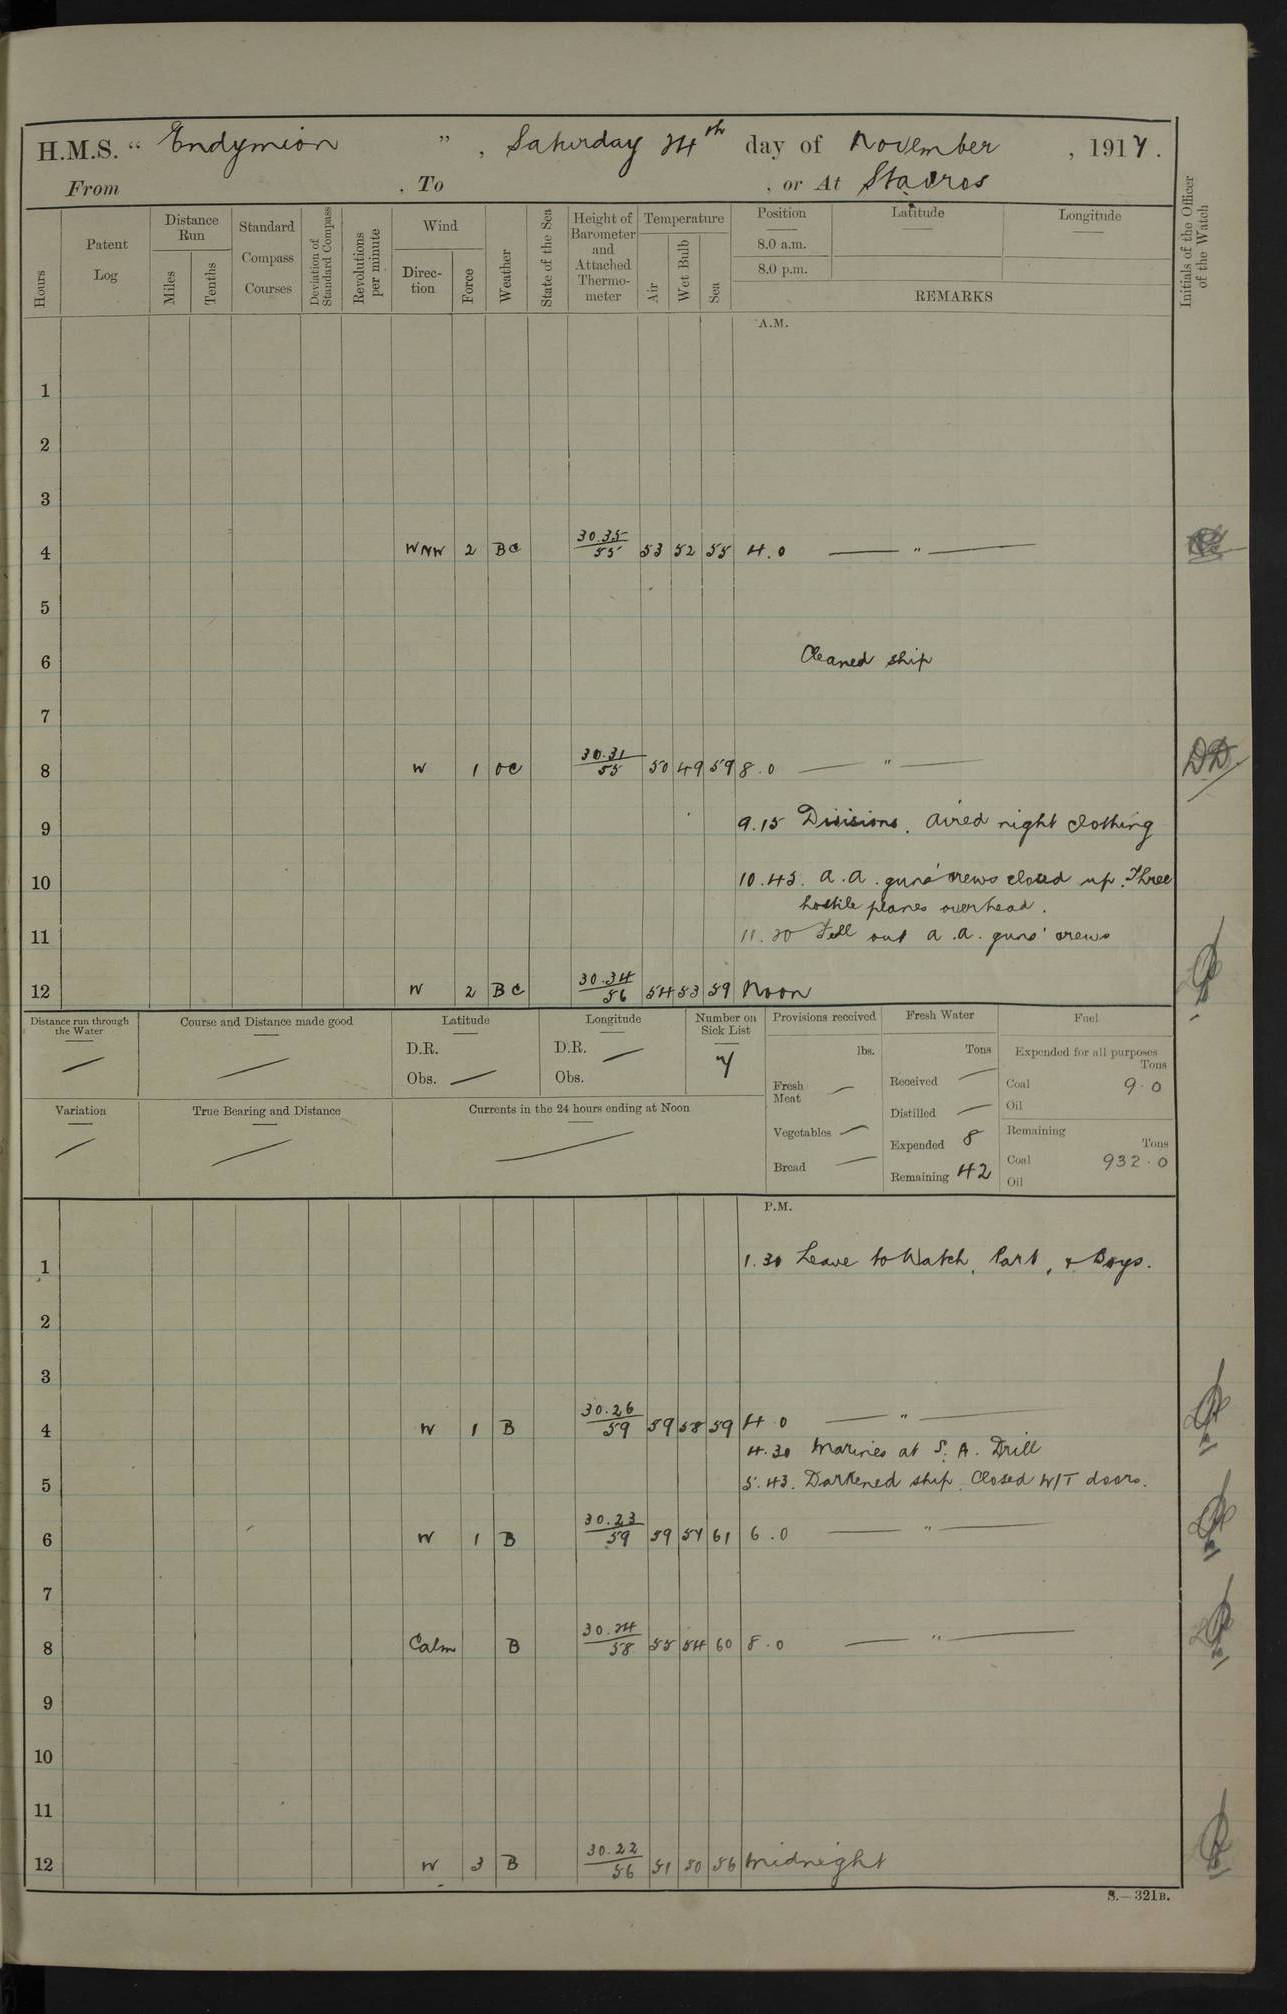 H.M.S. " Endymion ", Saturday 24th day of November, 1917.
From , To , or At Stavros
Hours
Patent Log
Distance Run
Miles
Tenths
Standard Compass Courses
Deviation of Standard Compass
Revolutions per minute
Wind
Direction
Force
Weather
State of the Sea
Height of Barometer and Attached Thermometer
Temperature
Air
Wet Bulb
Sea
Position
8.0 a.m.
8.0 p.m.
Latitude
Longitude
REMARKS
Initials of the Officer of the Watch
A.M.
1
2
3
4 WNW 2 BC 30.35 55 53 52 55 4.0 — " —
5
6 Cleaned ship
7
8 W 1 OC 30.31 55 50 49 59 8.0 — " — DD
9 9.15 Divisions. Aired night clothing
10 10.45. A.A. guns' crews closed up. Three
hostile planes overhead.
11 11.20 Fell out A.A. guns' crews
12 W 2 BC 30.34 56 54 53 59 Noon
Distance run through the Water —
Course and Distance made good —
Latitude D.R. Obs. —
Longitude D.R. — Obs.
Number on Sick List 7
Provisions received lbs.
Fresh Meat —
Vegetables —
Bread —
Fresh Water Tons
Received —
Distilled —
Expended 8
Remaining 42
Fuel
Expended for all purposes Tons
Coal 9.0
Oil
Remaining Tons
Coal 932.0
Oil
Variation —
True Bearing and Distance —
Currents in the 24 hours ending at Noon —
P.M.
1 1.30 Leave to Watch, Part, & Boys.
2
3
4 W 1 B 30.26 59 59 58 59 4.0 — " —
4.30 Marines at S.A. Drill
5 5.43. Darkened ship. Closed W/T doors.
6 W 1 B 30.23 59 59 57 61 6.0 — " —
7
8 Calm B 30.24 58 55 54 60 8.0 — " —
9
10
11
12 W 3 B 30.22 56 51 50 56 Midnight
S.—321B.